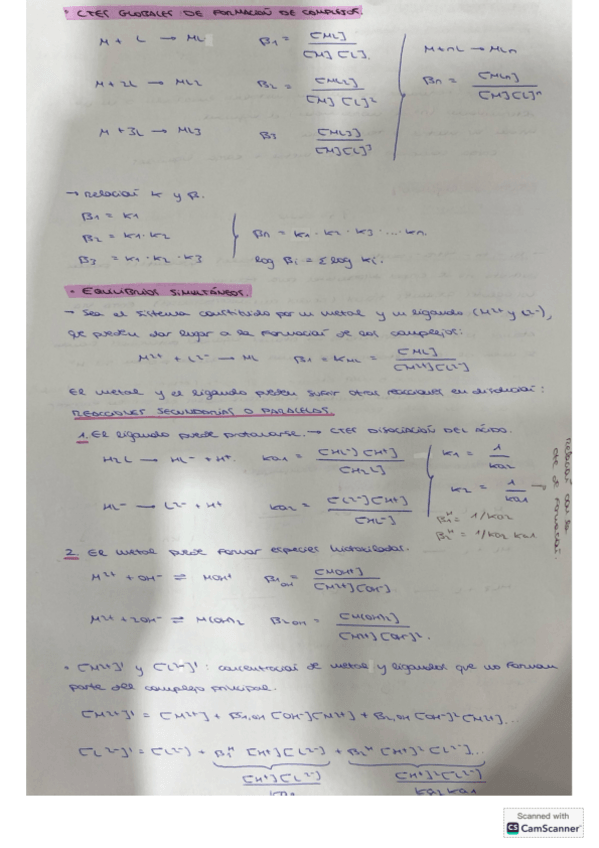 • CTES GLOBALES DE FORMACIÓN DE COMPLEJOS.
M + L → ML   B1 = [ML] / [M][L].
M + 2L → ML2   B2 = [ML2] / [M][L]²
M + 3L → ML3   B3 [ML3] / [M][L]³
M + nL → MLn
Bn = [MLn] / [M][L]ⁿ
→ Relación K y B.
B1 = K1
B2 = K1·K2
B3 = K1·K2·K3
Bn = K1·K2·K3·...·Kn.
log Bi = Σ log Ki.
• EQUILIBRIOS SIMULTÁNEOS.
→ Sea el sistema constituido por un metal y un ligando (M²⁺ y L²⁻),
se pueden dar lugar a la formación de los complejos:
M²⁺ + L²⁻ → ML   B1 = KML = [ML] / [M²⁺][L²⁻]
El metal y el ligando pueden sufrir otras reacciones en disolución:
REACCIONES SECUNDARIAS O PARALELAS.
1. El ligando puede protonarse. → CTES DISOCIACIÓN DEL ÁCIDO.
H2L → HL⁻ + H⁺.   Ka1 = [HL⁻][H⁺] / [H2L]
HL⁻ → L²⁻ + H⁺   Ka2 = [L²⁻][H⁺] / [HL⁻]
K1 = 1 / Ka2
K2 = 1 / Ka1 →
B1ᴴ = 1/Ka2
B2ᴴ = 1/Ka2 Ka1
Relación con la
cte de formación.
2. El metal puede formar especies hidroxiladas.
M²⁺ + OH⁻ ⇌ MOH⁺   B1OH = [MOH⁺] / [M²⁺][OH⁻]
M²⁺ + 2OH⁻ ⇌ M(OH)2   B2OH = [M(OH)2] / [M²⁺][OH⁻]².
• [M²⁺]' y [L²⁻]': concentración de metal y ligandos que no forman
parte del complejo principal.
[M²⁺]' = [M²⁺] + B1,OH [OH⁻][M²⁺] + B2,OH [OH⁻]²[M²⁺]...
[L²⁻]' = [L²⁻] + B1ᴴ [H⁺][L²⁻] + B2ᴴ [H⁺]²[L²⁻]...
[H⁺][L²⁻]   [H⁺]²[L²⁻]
Ka2 Ka1
Scanned with
CS CamScanner